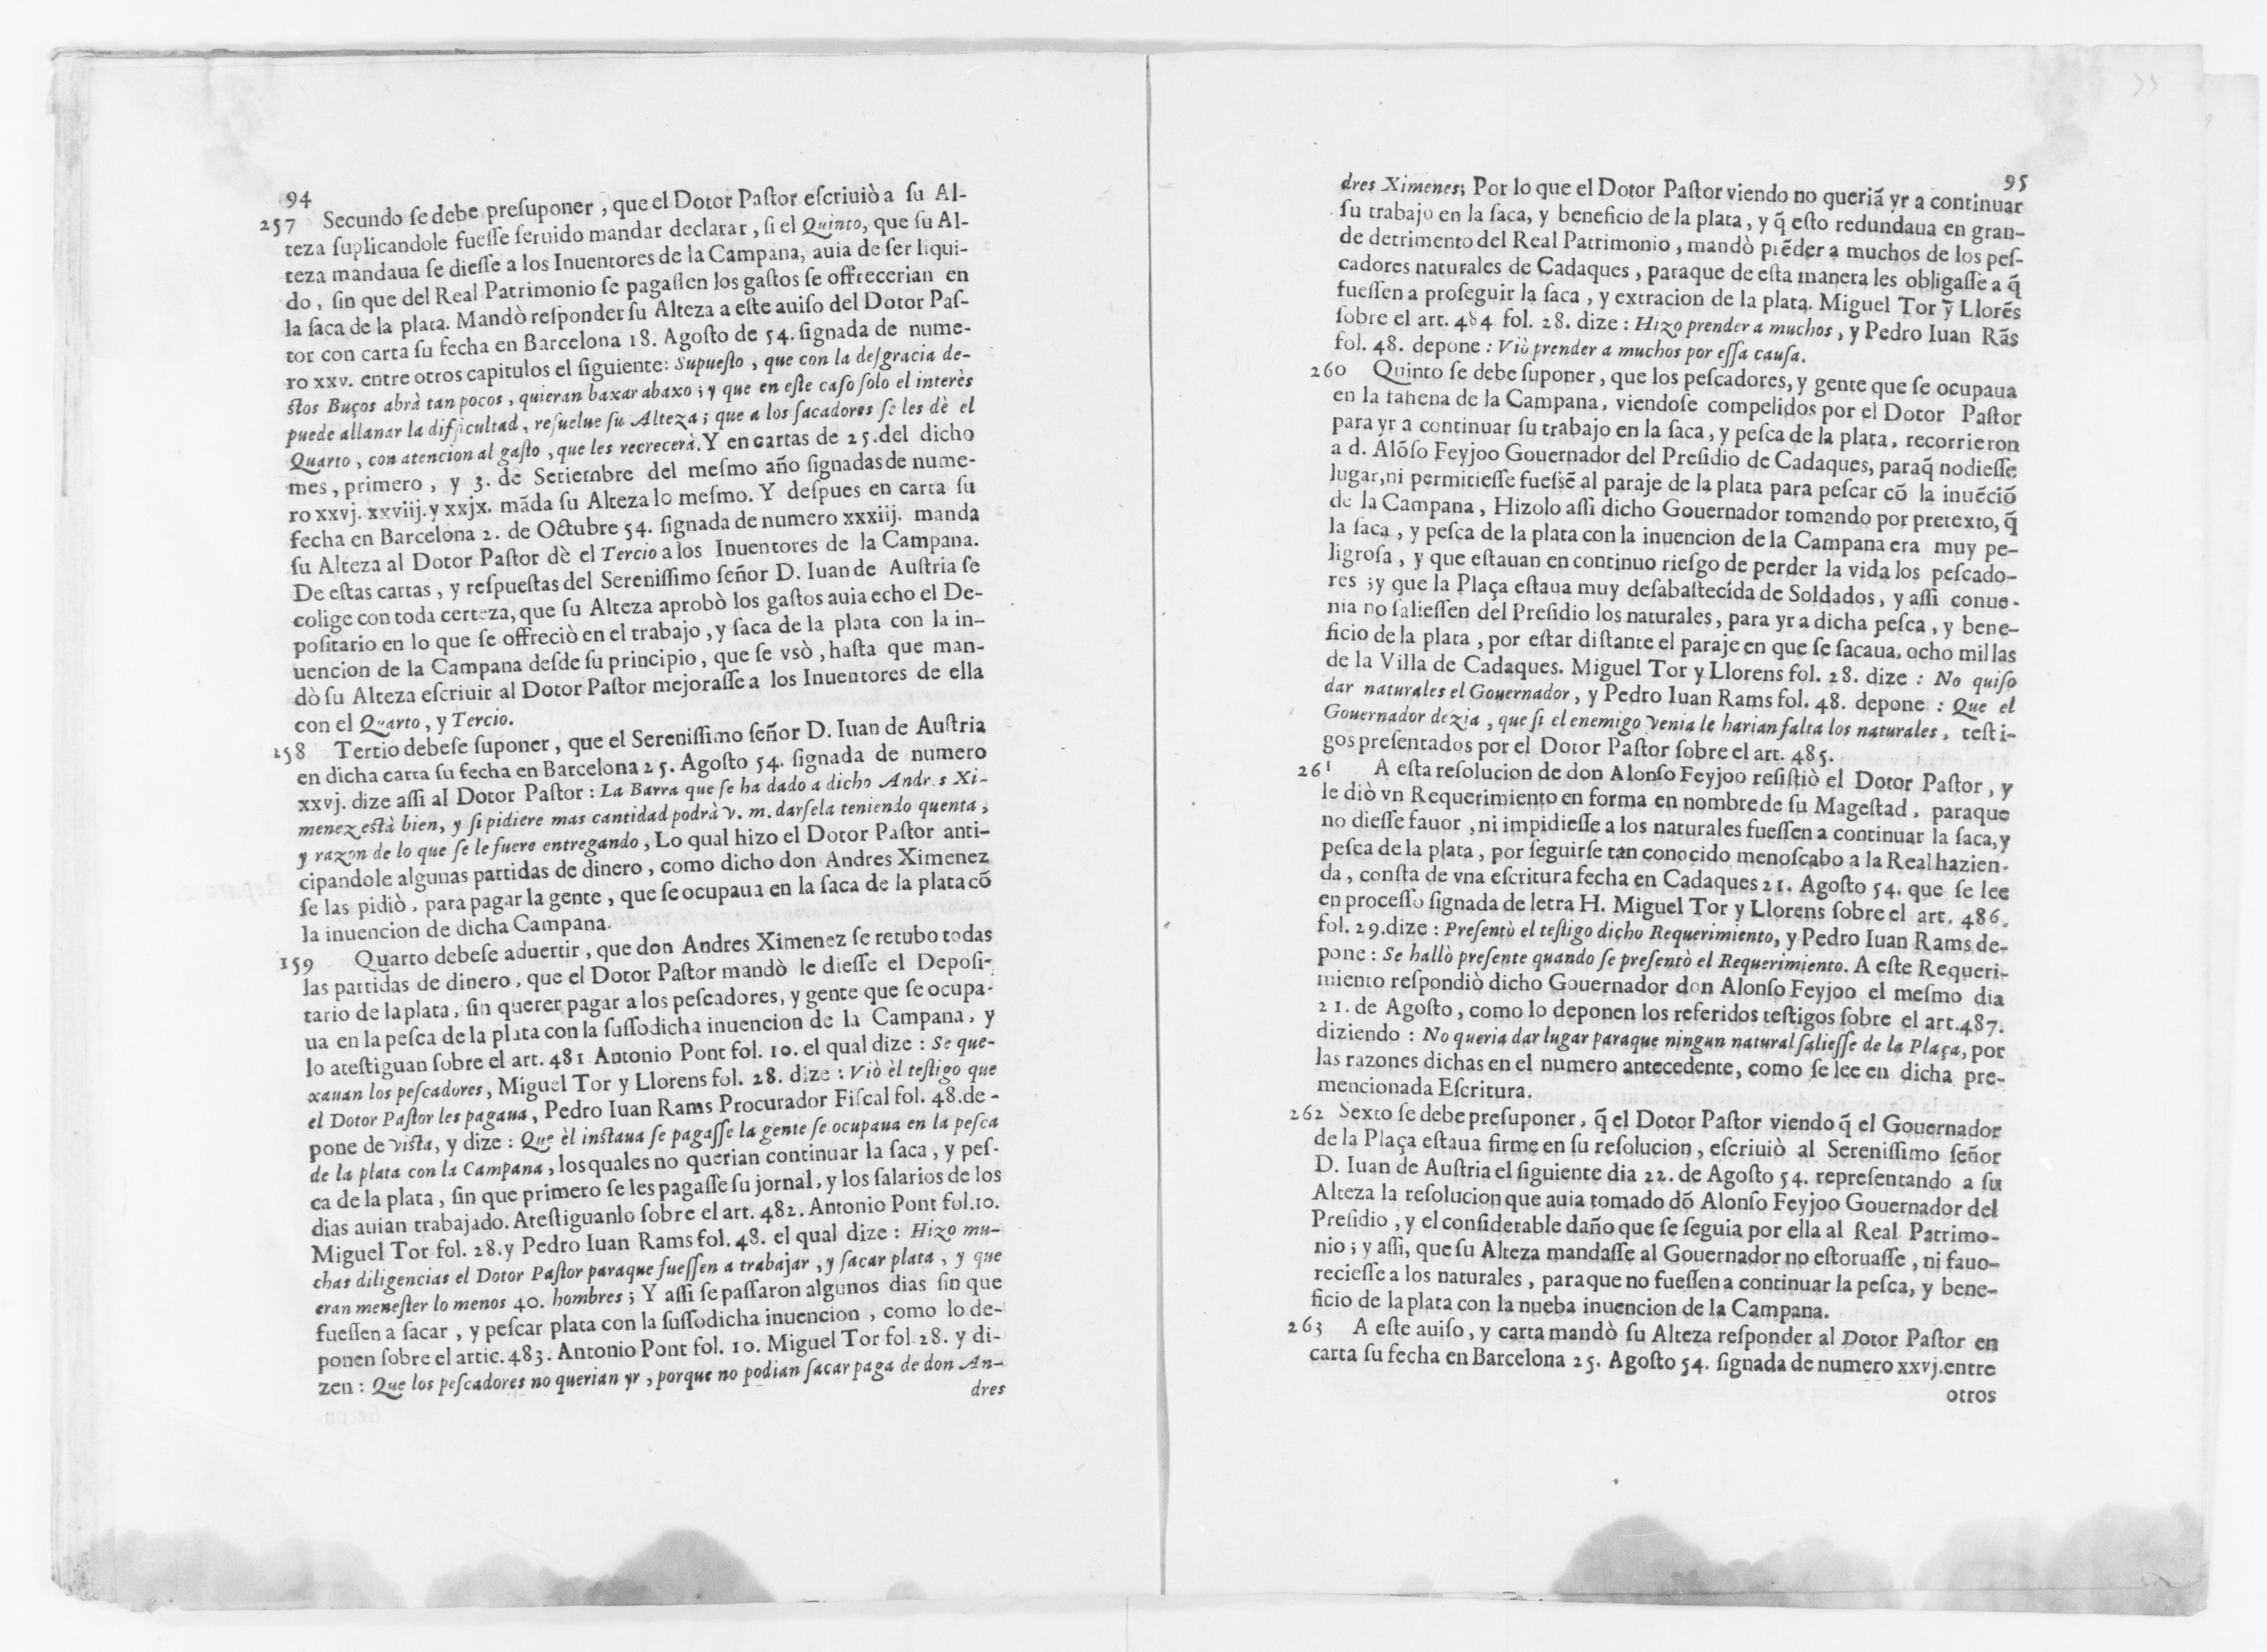 94
257 Secundo se debe presuponer, que el Dotor Pastor escriuiò a su Al-
teza suplicandole fuesse seruido mandar declarar, si el Quinto, que su Al-
teza mandaua se diesse a los Inuentores de la Campana, auia de ser liqui-
do, sin que del Real Patrimonio se pagassen los gastos se offrecerian en
la saca de la plata. Mandò responder su Alteza a este auiso del Dotor Pas-
tor con carta su fecha en Barcelona 18. Agosto de 54. signada de nume-
ro xxv. entre otros capitulos el siguiente: Supuesto, que con la desgracia de-
stos Buços abrà tan pocos, quieran baxar abaxo; y que en este caso solo el interès
puede allanar la difficultad, resuelue su Alteza; que a los sacadores se les dè el
Quarto, con atencion al gasto, que les recrecerà. Y en cartas de 25. del dicho
mes, primero, y 3. de Setiembre del mesmo año signadas de nume-
ro xxvj. xxviij. y xxjx. mãda su Alteza lo mesmo. Y despues en carta su
fecha en Barcelona 2. de Octubre 54. signada de numero xxxiij. manda
su Alteza al Dotor Pastor dè el Tercio a los Inuentores de la Campana.
De estas cartas, y respuestas del Serenissimo señor D. Iuan de Austria se
colige con toda certeza, que su Alteza aprobò los gastos auia echo el De-
positario en lo que se offreciò en el trabajo, y saca de la plata con la in-
uencion de la Campana desde su principio, que se vsò, hasta que man-
dò su Alteza escriuir al Dotor Pastor mejorasse a los Inuentores de ella
con el Quarto, y Tercio.
258 Tertio debese suponer, que el Serenissimo señor D. Iuan de Austria
en dicha carta su fecha en Barcelona 25. Agosto 54. signada de numero
xxvj. dize assi al Dotor Pastor: La Barra que se ha dado a dicho Andr s Xi-
menez està bien, y si pidiere mas cantidad podrà v. m. darsela teniendo quenta,
y razon de lo que se le fuere entregando, Lo qual hizo el Dotor Pastor anti-
cipandole algunas partidas de dinero, como dicho don Andres Ximenez
se las pidiò, para pagar la gente, que se ocupaua en la saca de la plata cõ
la inuencion de dicha Campana.
159 Quarto debese aduertir, que don Andres Ximenez se retubo todas
las partidas de dinero, que el Dotor Pastor mandò le diesse el Deposi-
tario de la plata, sin querer pagar a los pescadores, y gente que se ocupa-
ua en la pesca de la plata con la sussodicha inuencion de la Campana, y
lo atestiguan sobre el art. 481 Antonio Pont fol. 10. el qual dize: Se que-
xauan los pescadores, Miguel Tor y Llorens fol. 28. dize: Viò èl testigo que
el Dotor Pastor les pagaua, Pedro Iuan Rams Procurador Fiscal fol. 48. de-
pone de vista, y dize: Que èl instaua se pagasse la gente se ocupaua en la pesca
de la plata con la Campana, los quales no querian continuar la saca, y pes-
ca de la plata, sin que primero se les pagasse su jornal, y los salarios de los
dias auian trabajado. Atestiguanlo sobre el art. 482. Antonio Pont fol. 10.
Miguel Tor fol. 28. y Pedro Iuan Rams fol. 48. el qual dize: Hizo mu-
chas diligencias el Dotor Pastor paraque fuessen a trabajar, y sacar plata, y que
eran menester lo menos 40. hombres; Y assi se passaron algunos dias sin que
fuessen a sacar, y pescar plata con la sussodicha inuencion, como lo de-
ponen sobre el artic. 483. Antonio Pont fol. 10. Miguel Tor fol 28. y di-
zen: Que los pescadores no querian yr, porque no podian sacar paga de don An-
dres
95
dres Ximenes; Por lo que el Dotor Pastor viendo no queriã yr a continuar
su trabajo en la saca, y beneficio de la plata, y q̃ esto redundaua en gran-
de detrimento del Real Patrimonio, mandò prẽder a muchos de los pes-
cadores naturales de Cadaques, paraque de esta manera les obligasse a q̃
fuessen a proseguir la saca, y extracion de la plata. Miguel Tor ỹ Llorẽs
sobre el art. 484 fol. 28. dize: Hizo prender a muchos, y Pedro Iuan Rãs
fol. 48. depone: Viò prender a muchos por essa causa.
260 Quinto se debe suponer, que los pescadores, y gente que se ocupaua
en la tahena de la Campana, viendose compelidos por el Dotor Pastor
para yr a continuar su trabajo en la saca, y pesca de la plata, recorrieron
a d. Alõso Feyjoo Gouernador del Presidio de Cadaques, paraq̃ no diesse
lugar, ni permitiesse fuessẽ al paraje de la plata para pescar cõ la inuẽciõ
de la Campana, Hizolo assi dicho Gouernador tomando por pretexto, q̃
la saca, y pesca de la plata con la inuencion de la Campana era muy pe-
ligrosa, y que estauan en continuo riesgo de perder la vida los pescado-
res; y que la Plaça estaua muy desabastecida de Soldados, y assi conue-
nia no saliessen del Presidio los naturales, para yr a dicha pesca, y bene-
ficio de la plata, por estar distante el paraje en que se sacaua, ocho millas
de la Villa de Cadaques. Miguel Tor y Llorens fol. 28. dize: No quiso
dar naturales el Gouernador, y Pedro Iuan Rams fol. 48. depone: Que el
Gouernador dezia, que si el enemigo venia le harian falta los naturales, testi-
gos presentados por el Dotor Pastor sobre el art. 485.
261 A esta resolucion de don Alonso Feyjoo resistiò el Dotor Pastor, y
le diò vn Requerimiento en forma en nombre de su Magestad, paraque
no diesse fauor, ni impidiesse a los naturales fuessen a continuar la saca, y
pesca de la plata, por seguirse tan conocido menoscabo a la Real hazien-
da, consta de vna escritura fecha en Cadaques 21. Agosto 54. que se lee
en processo signada de letra H. Miguel Tor y Llorens sobre el art. 486.
fol. 29. dize: Presentò el testigo dicho Requerimiento, y Pedro Iuan Rams de-
pone: Se hallò presente quando se presentò el Requerimiento. A este Requeri-
miento respondiò dicho Gouernador don Alonso Feyjoo el mesmo dia
21. de Agosto, como lo deponen los referidos testigos sobre el art. 487.
diziendo: No queria dar lugar paraque ningun natural saliesse de la Plaça, por
las razones dichas en el numero antecedente, como se lee en dicha pre-
mencionada Escritura.
262 Sexto se debe presuponer, q̃ el Dotor Pastor viendo q̃ el Gouernador
de la Plaça estaua firme en su resolucion, escriuiò al Serenissimo señor
D. Iuan de Austria el siguiente dia 22. de Agosto 54. representando a su
Alteza la resolucion que auia tomado dõ Alonso Feyjoo Gouernador del
Presidio, y el considerable daño que se seguia por ella al Real Patrimo-
nio; y assi, que su Alteza mandasse al Gouernador no estoruasse, ni fauo-
reciesse a los naturales, paraque no fuessen a continuar la pesca, y bene-
ficio de la plata con la nueba inuencion de la Campana.
263 A este auiso, y carta mandò su Alteza responder al Dotor Pastor en
carta su fecha en Barcelona 25. Agosto 54. signada de numero xxvj. entre
otros